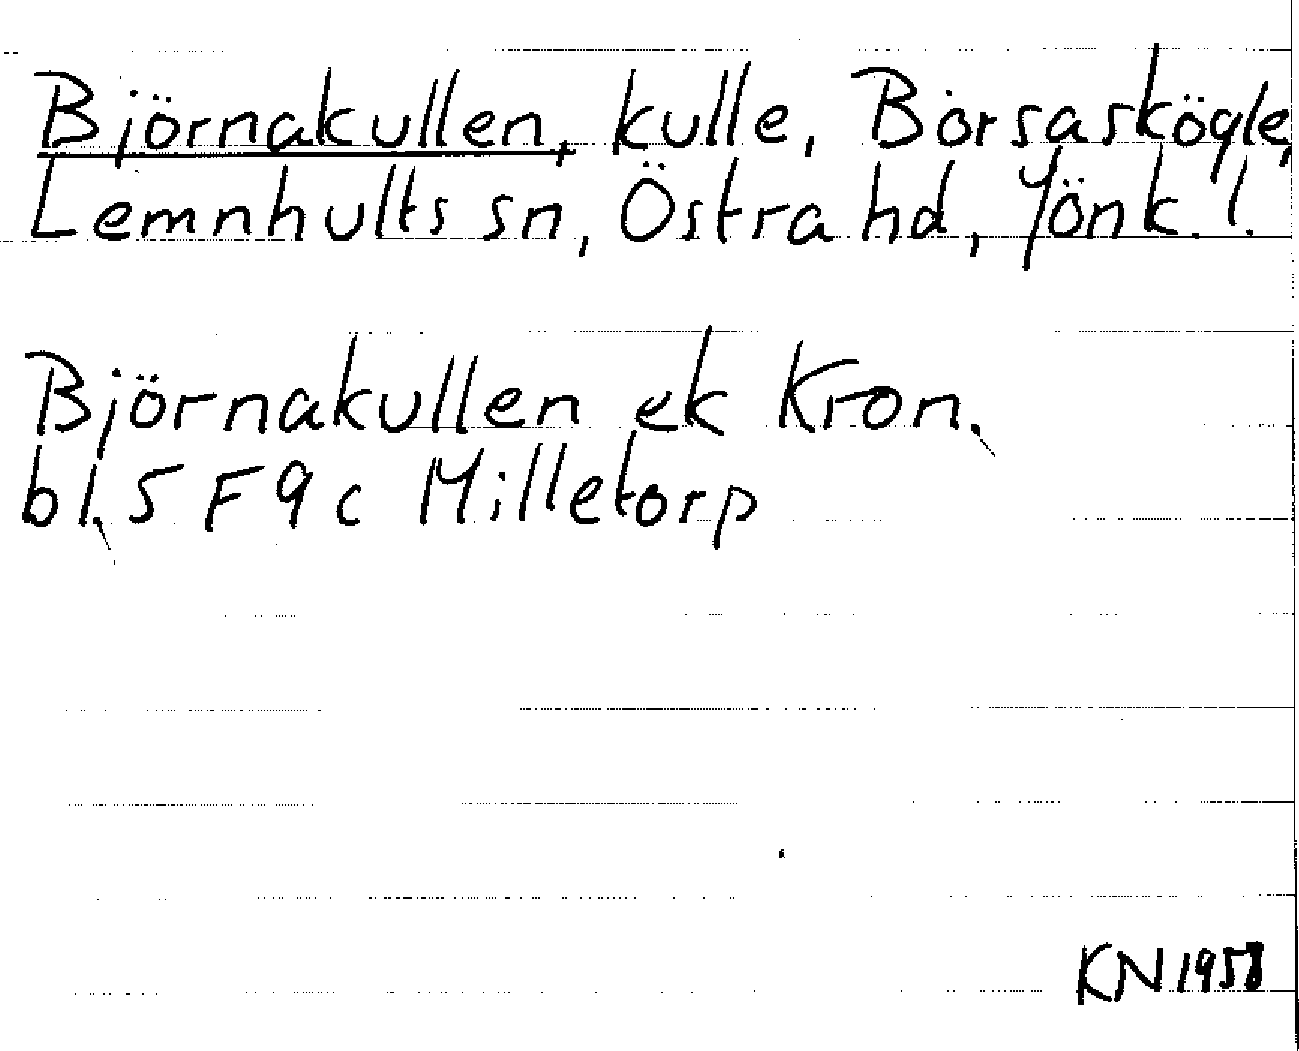 Björnakullen, kulle, Borsaskögle,
Lemnhults sn, Östra hd, Jönk. l.
Björnakullen ek Kron.
bl. 5 F 9 c Milletorp
KN 1958